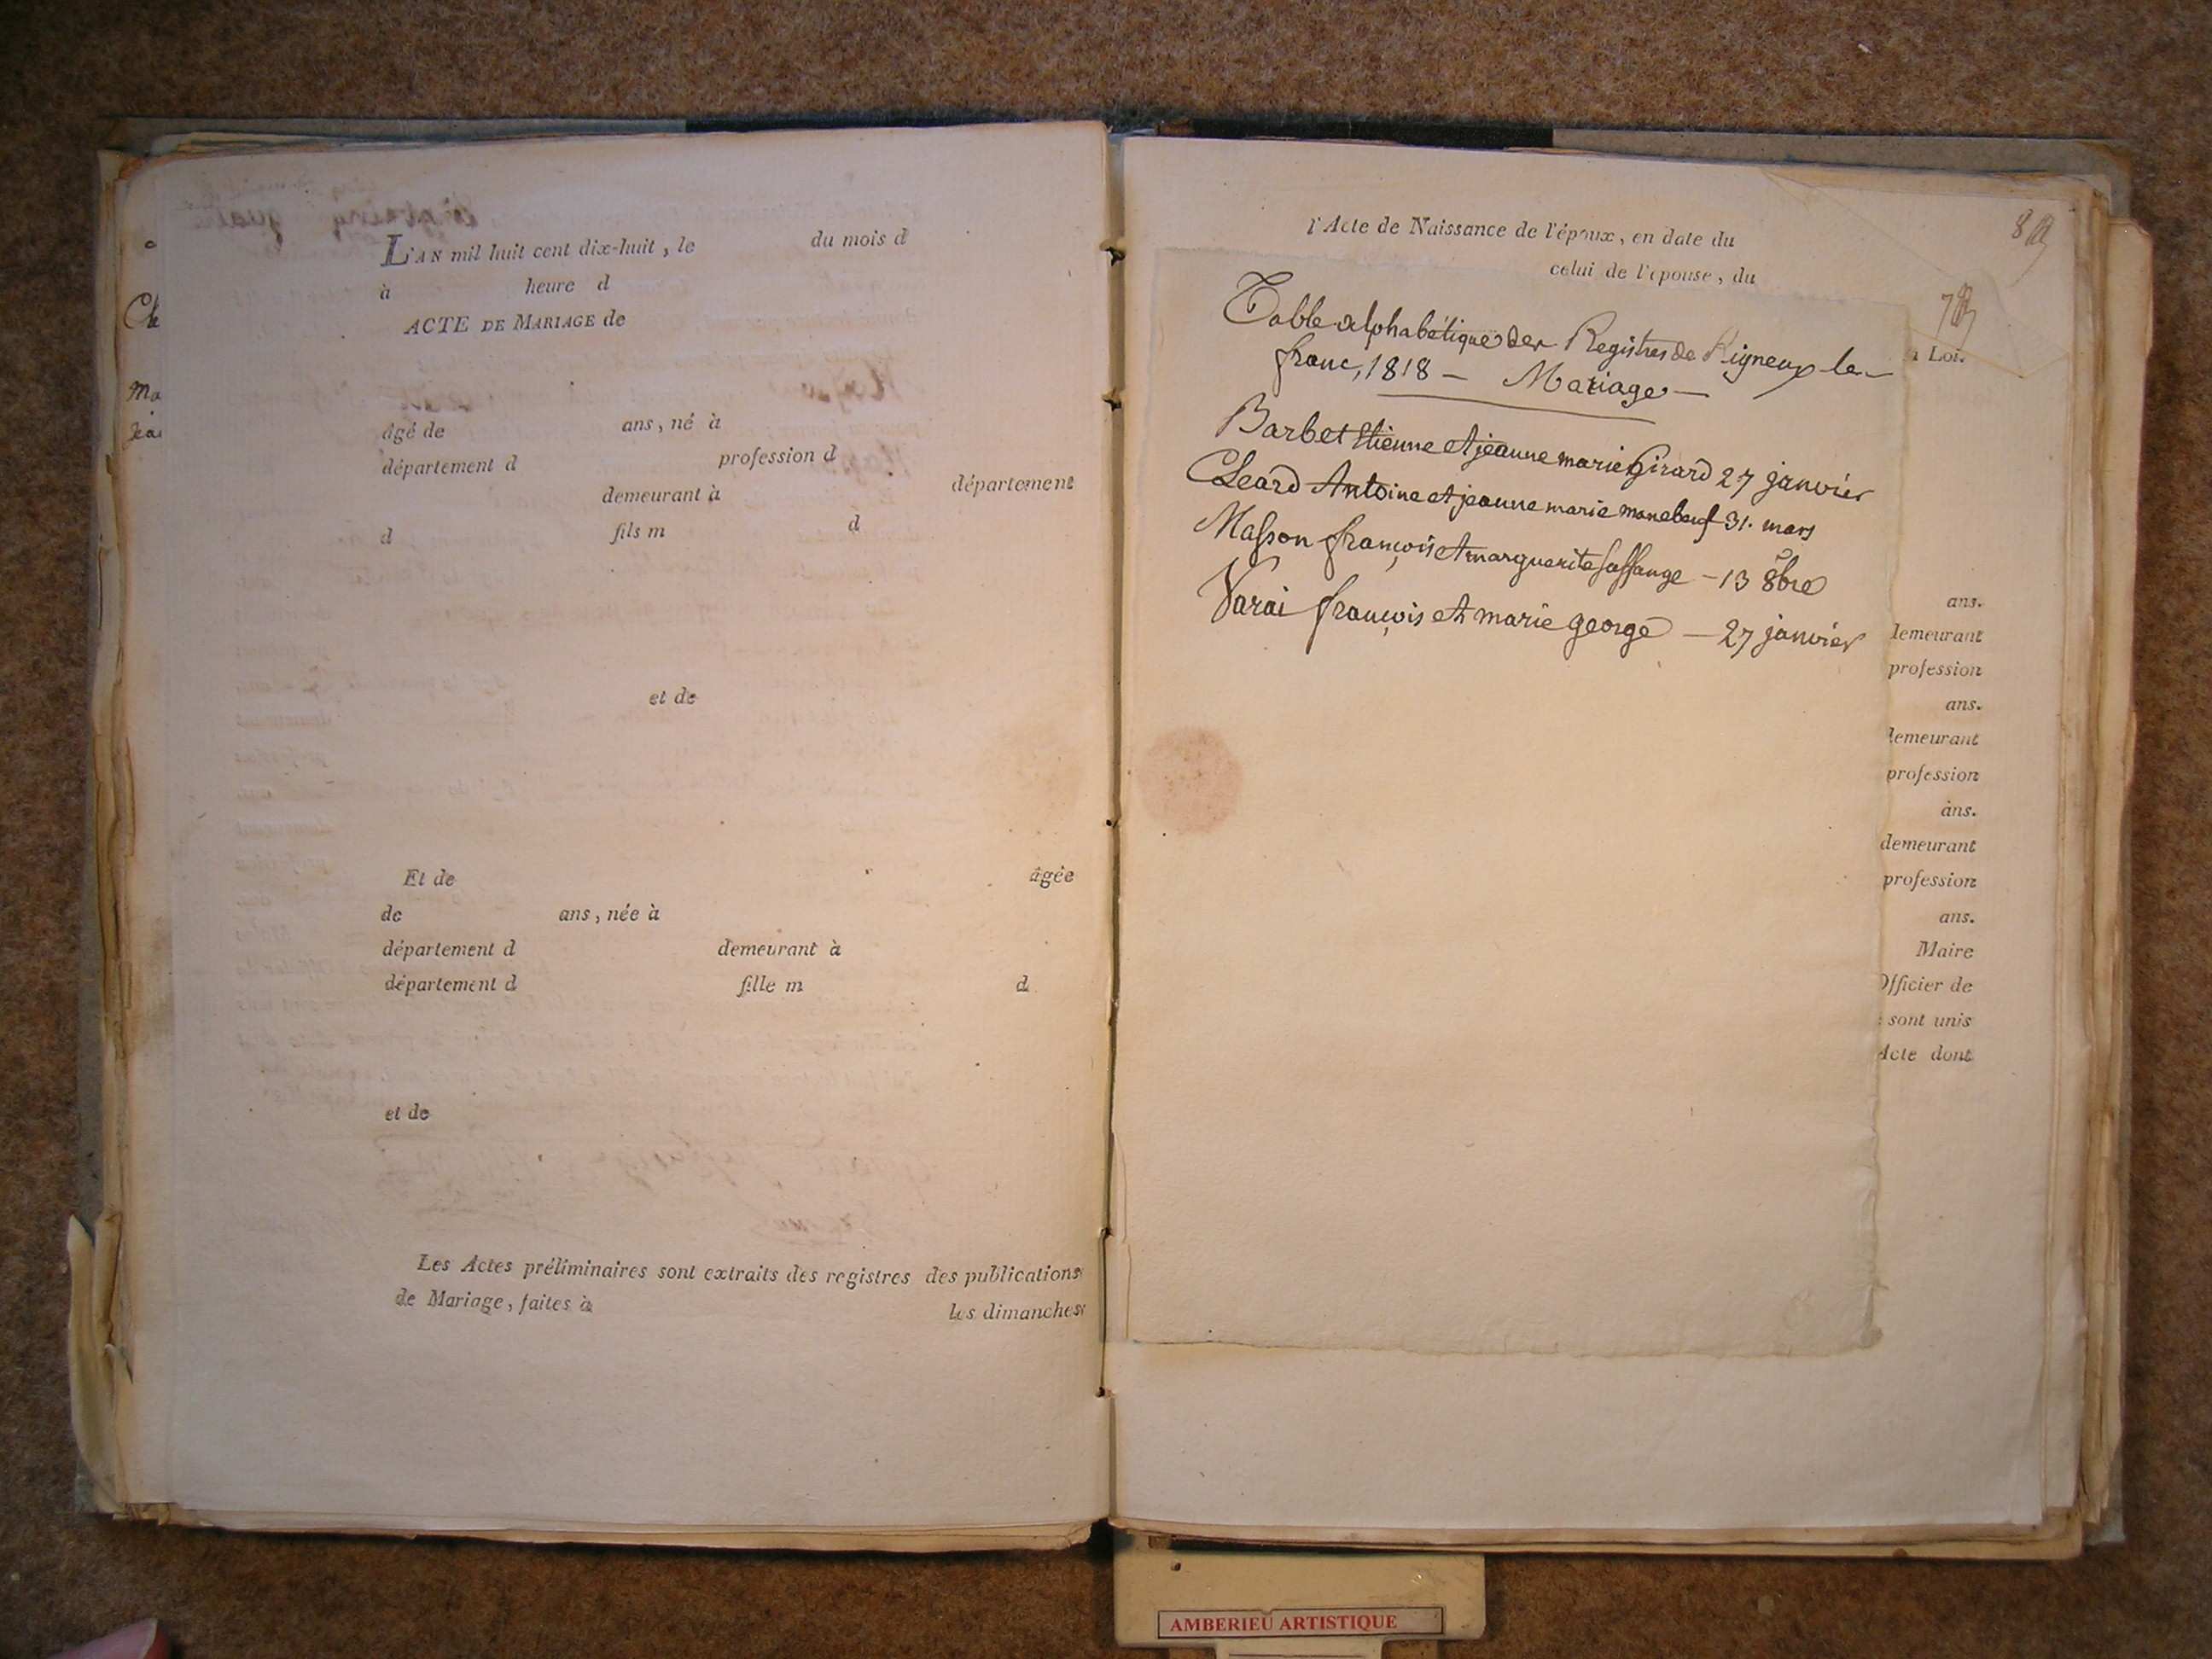 L'AN mil huit cent dix-huit, le du mois d
à heure d
ACTE DE MARIAGE de
âgé de ans, né à
département d profession d
demeurant à département
d fils m d
et de
Et de âgée
de ans, née à
département d demeurant à
département d fille m d
et de
Les Actes préliminaires sont extraits des registres des publications
de Mariage, faites à les dimanches
Ch
Ma
jea
l'Acte de Naissance de l'époux, en date du
celui de l'épouse, du
8
7
Table alphabétique des Registres de Rigneux le
franc, 1818 – Mariage –
Barbet Etienne et jeanne marie Girard 27 janvier
Cleard Antoine et jeanne marie manebeuf 31. mars
Masson françois et marguerite saffange – 13 8bre
Varai françois et marie george – 27 janvier
Loi.
ans.
demeurant
profession
ans.
demeurant
profession
ans.
demeurant
profession
ans.
Maire
Officier de
sont unis
Acte dont
AMBERIEU ARTISTIQUE